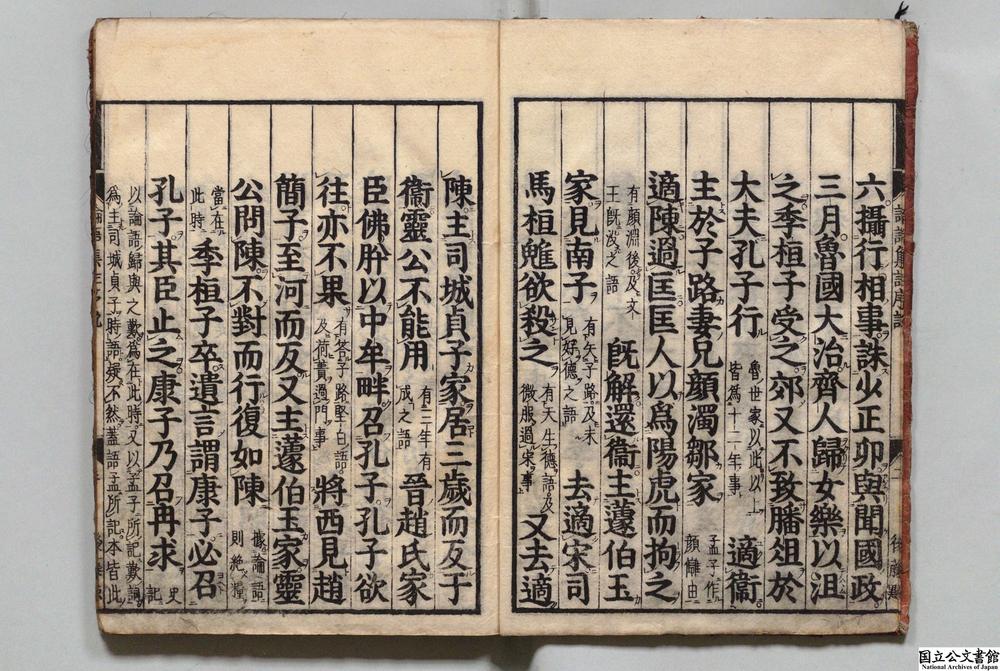 六攝行相事誅少正卯與聞國政
三月魯國大治齊人歸女樂以沮
之季桓子受之郊又不致膰俎於
大夫孔子行魯世家以此以上皆爲十二年事適衞
主於子路妻兄顏濁鄒家孟子作顏讎由
適陳過匡匡人以爲陽虎而拘之
有顏淵後及文王旣没之語旣解還衞主蘧伯玉
家見南子有矢子路及未見好德之語去適宋司
馬桓魋欲殺之有天生德語及微服過宋事又去適
陳主司城貞子家居三歲而反于
衞靈公不能用有三年有成之語晉趙氏家
臣佛肸以中牟畔召孔子孔子欲
往亦不果有答子路堅白語及荷蕢過門事將西見趙
簡子至河而反又主蘧伯玉家靈
公問陳不對而行復如陳據論語則絶糧
當在此時季桓子卒遺言謂康子必召
孔子其臣止之康子乃召冉求史記
以論語歸與之歎爲在此時又以孟子所記歎詞
爲主司城貞子時語疑不然蓋語孟所記本皆此
国立公文書館
National Archives of Japan